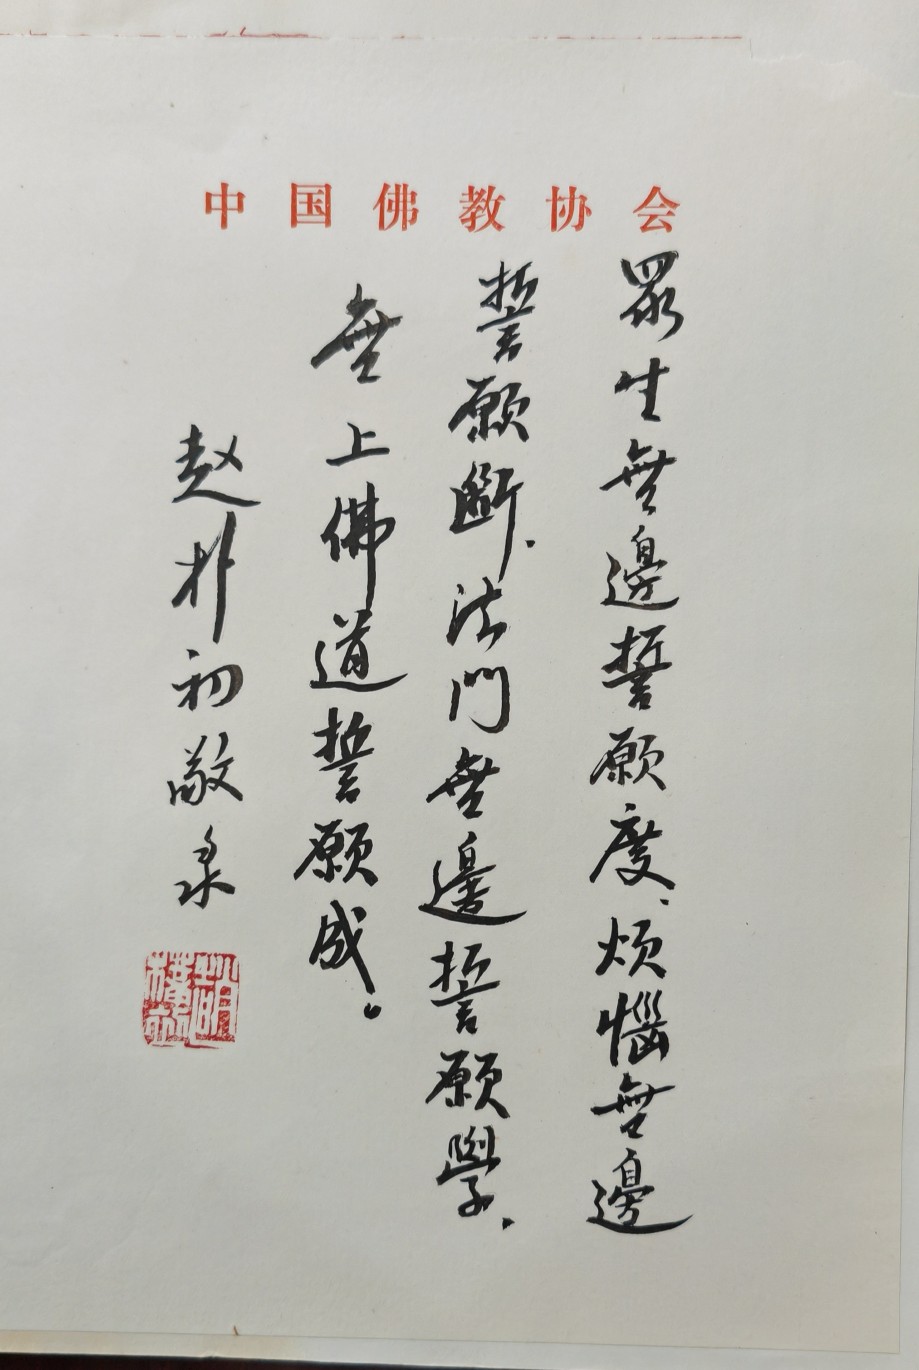 中国佛教协会
眾生無邊誓願度、煩惱無邊
誓願斷、法門無邊誓願學、
無上佛道誓願成。
赵朴初敬录
趙樸初